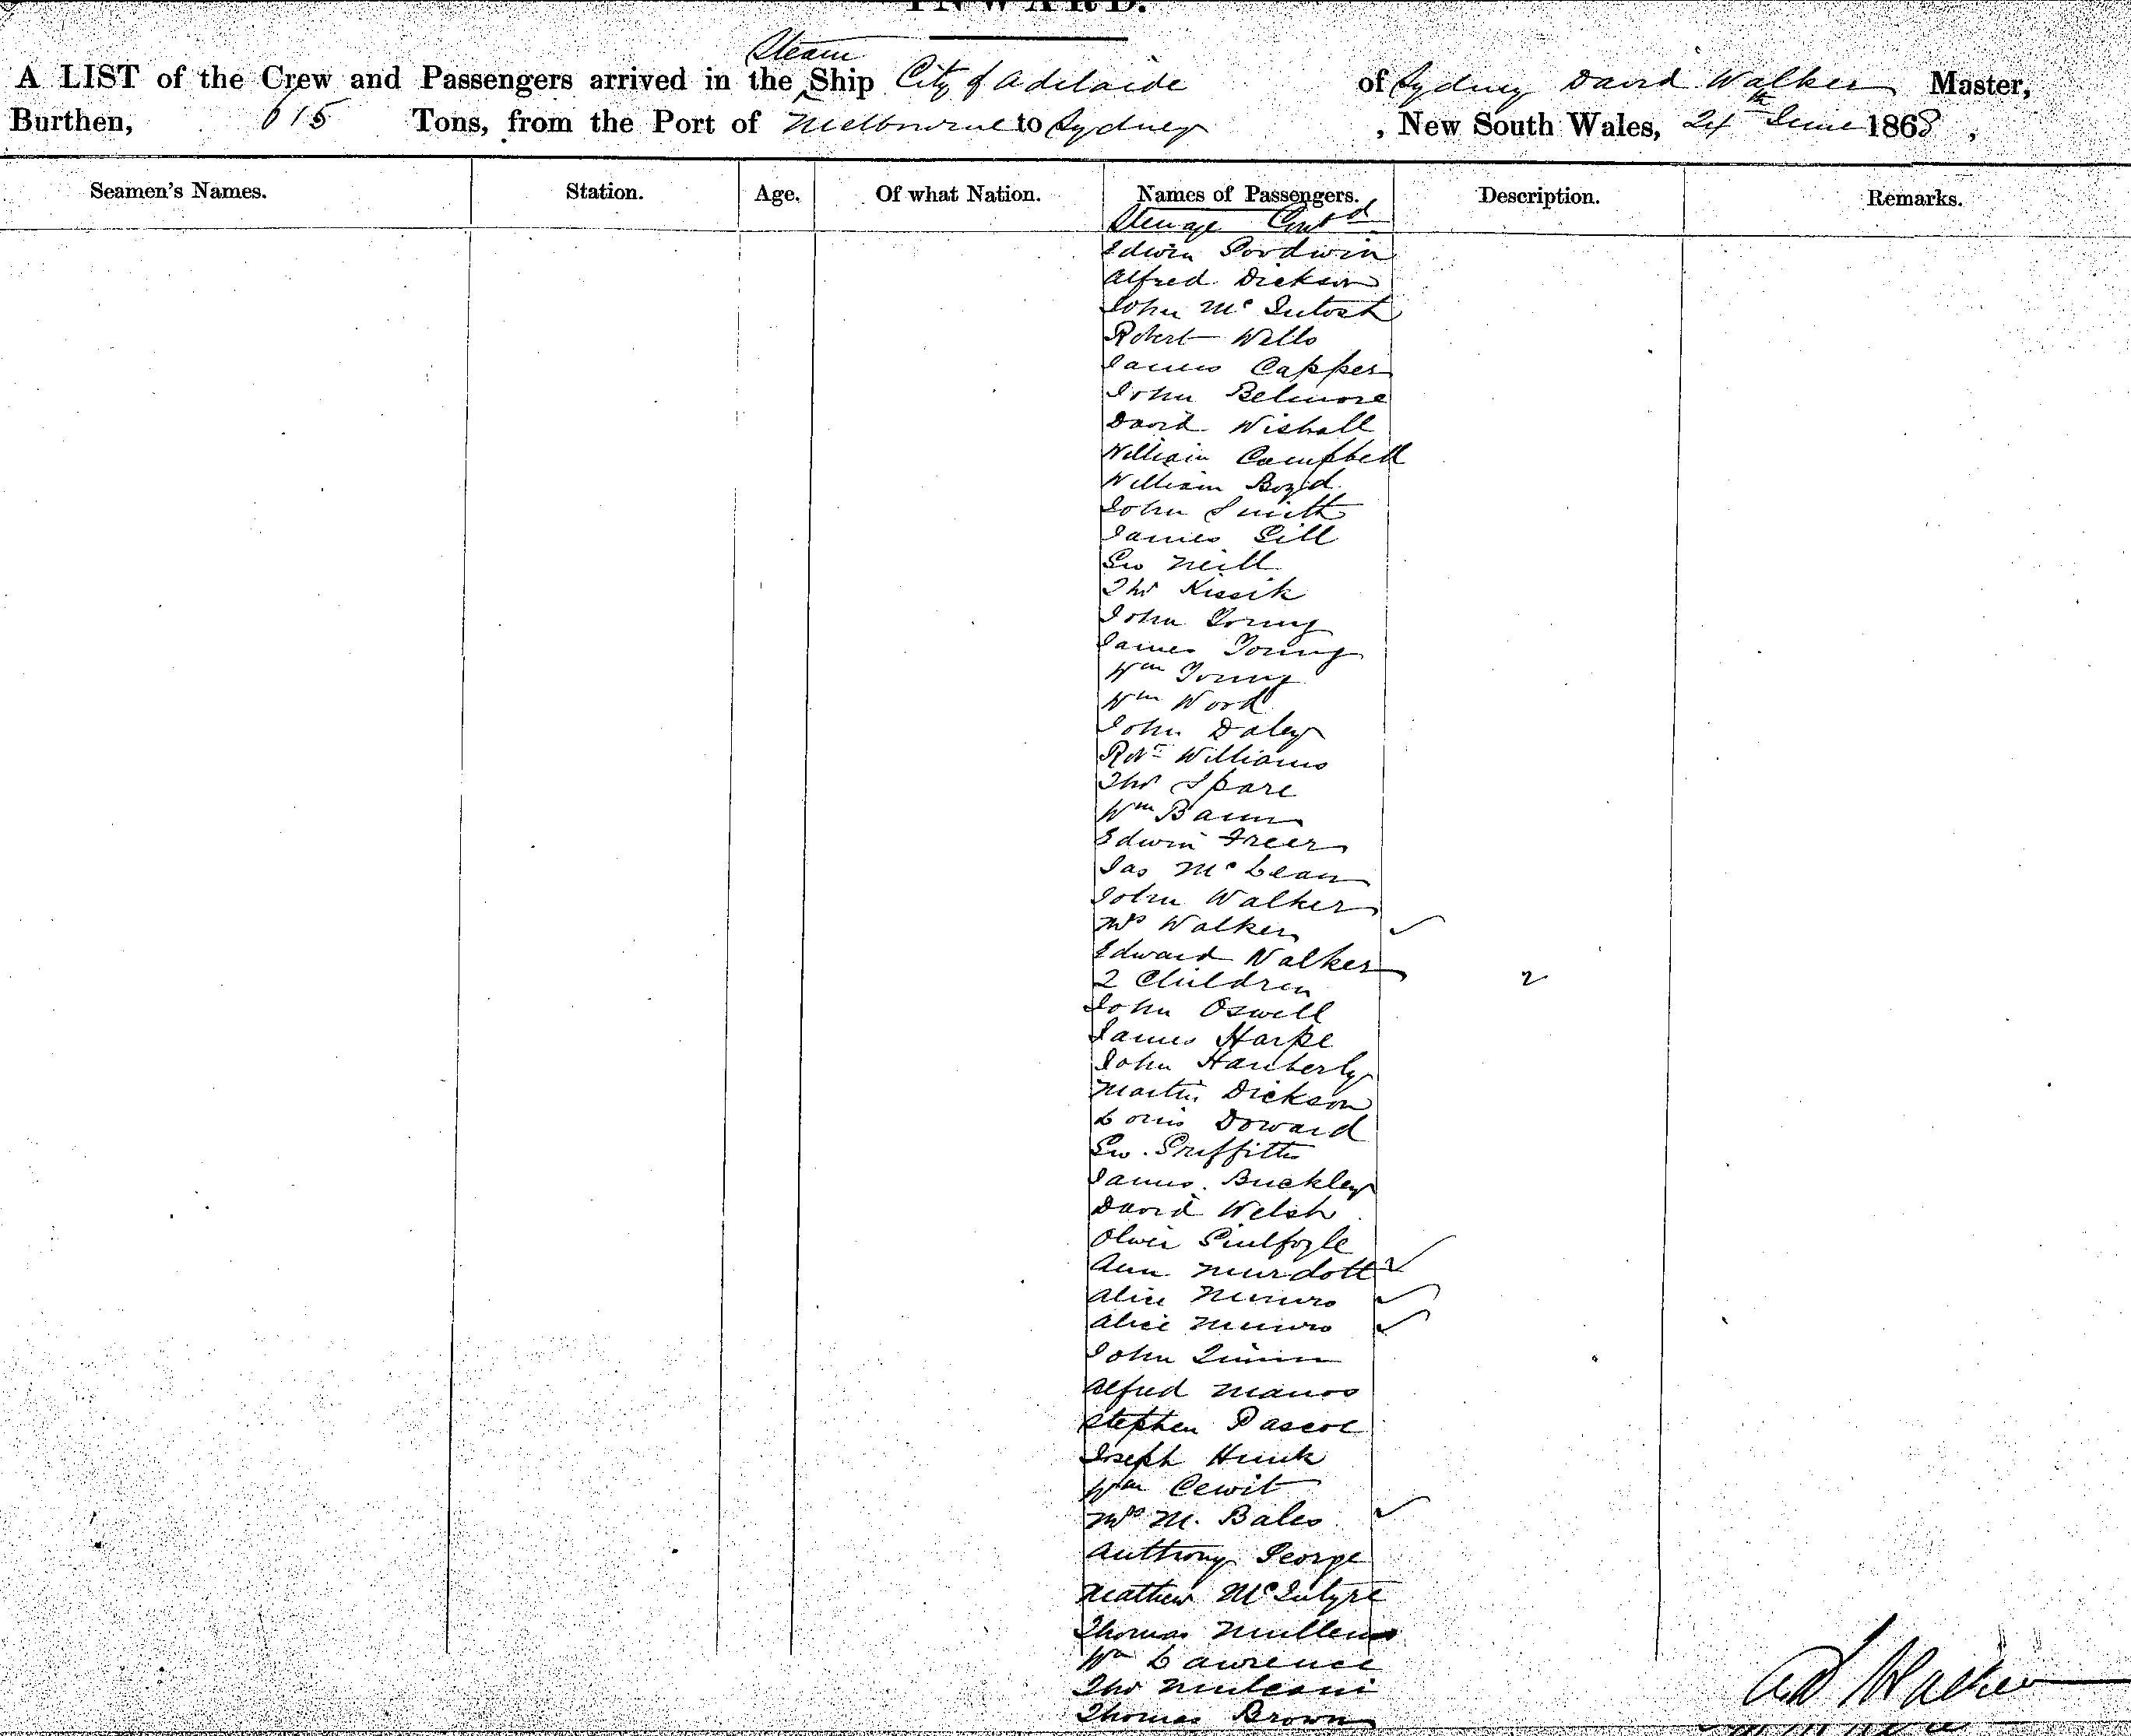 INWARD.
Steam
A LIST of the Crew and Passengers arrived in the Ship City of Adelaide of Sydney David Walker Master,
Burthen, 615 Tons, from the Port of Melbourne to Sydney, New South Wales, 24th June 1868,
Seamen's Names. Station. Age. Of what Nation. Names of Passengers. Description. Remarks.
Steerage Contd
Edwin Goodwin
Alfred Dickson
John McIntosh
Robert Wills
James Capper
John Belmore
David Wishall
William Campbell
William Boyd
John Smith
James Gill
Geo Neill
Thos Kissik
John Young
James Young
Wm Young
Wm Wood
John Daley
Robt Williams
Thos Spare
Wm Baum
Edwin Freer
Jas McLean
John Walker
Mrs Walker
Edward Walker
2 Children 2
John Oswell
James Harpe
John Hamberly
Martin Dickson
Louis Doward
Geo. Griffiths
James Buckley
David Welsh
Oliver
Ann Murdott
Alice Munro
Alice Munro
John Quinn
Alfred Manos
Stephen Pascoe
Joseph Hunk
Wm Cewit
Mrs M. Bales
Anthony George
Mathew McIntyre
Thomas Mullens
Wm Lawrence
Thos
Thomas Brown
Walker